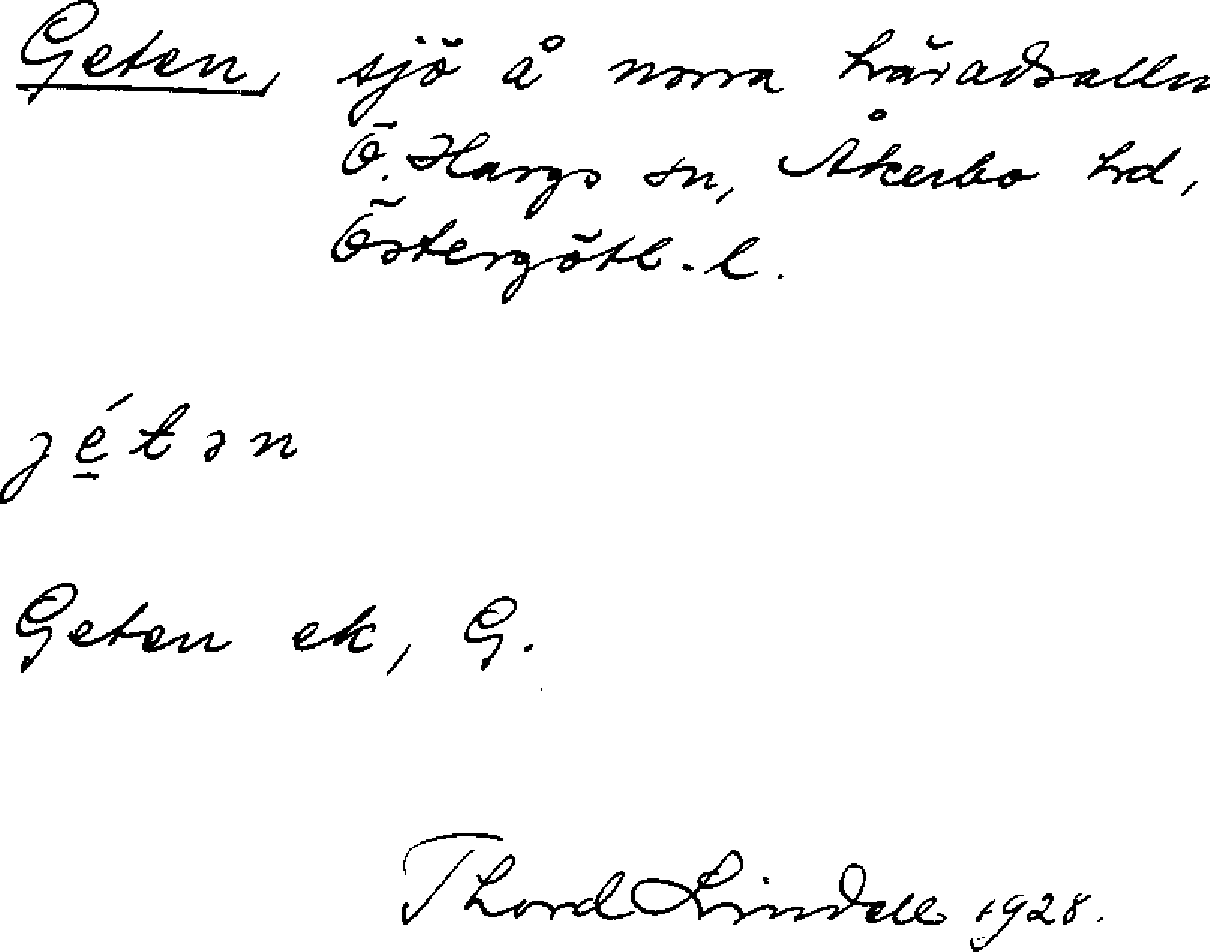 Geten, sjö å norra häradsallm
Ö. Hargs sn, Åkerbo hd,
Östergötl. l.
jétən
Geten ek, G.
Thord Lindell 1928.